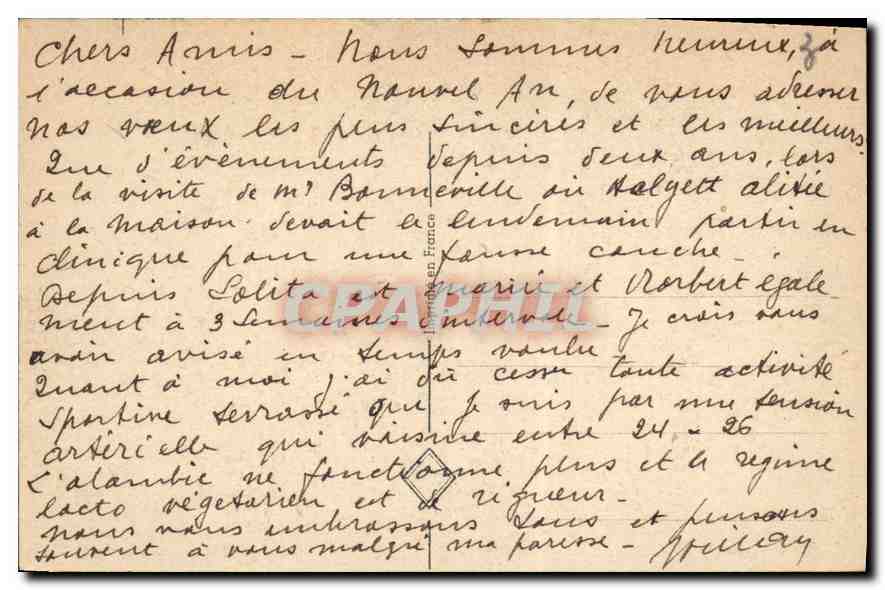 Chers Amis - Nous sommes heureux, à
l'occasion du Nouvel An, de vous adresser
nos vœux les plus sincères et les meilleurs.
Que d'évènements depuis deux ans, lors
de la visite de Mr Bonneville où alitée
à la maison devait le lendemain partir en
clinique pour une fausse couche -
Depuis Lolita est mariée et Norbert égale
ment à 3 semaines d'intervale - Je crois vous
avoir avisé en temps voulu
Quant à moi j'ai dû cesser toute activité
sportive terrassé que je suis par une tension
artérielle qui voisine entre 24 - 26
L'alambic ne fonctionne plus et le regime
lacto végétarien est de rigueur -
nous vous embrassons tous et pensons
souvent à vous malgré ma paresse -
Imprimé en France
CPAPHIL